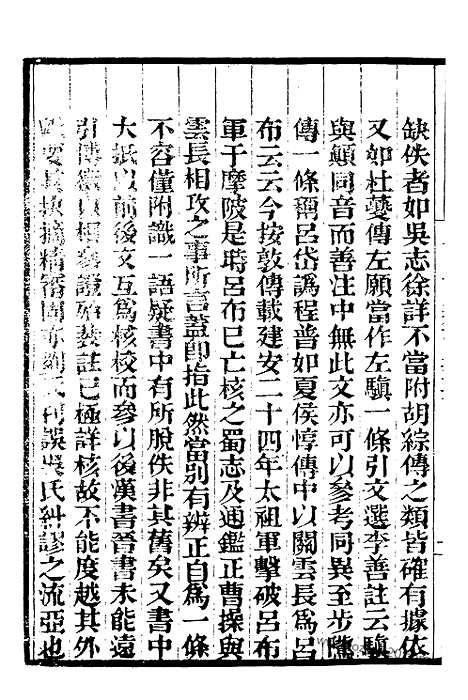 缺佚者如吳志徐詳不當附胡綜傳之類皆確有據依
又如杜夔傳左願當作左𩥇一條引文選李善註云𩥇
與顛同音而善注中無此文亦可以參考同異至步騭
傳一條謂呂岱譌程普如夏侯惇傳中以關雲長爲呂
布云云今按敦傳載建安二十四年太祖軍擊破呂布
軍于摩陂是時呂布已亡核之蜀志及通鑑正曹操與
雲長相攻之事所言蓋即指此然當別有辨正自爲一條
不容僅附識一語疑書中有所脫佚非其舊矣又書中
大抵以前後文互爲核校而參以後漢書晉書未能遠
引傳徵以相參證殆裴註已極詳核故不能度越其外
要其抉摘精審固亦劉氏刊誤吳氏糾謬之流亞也